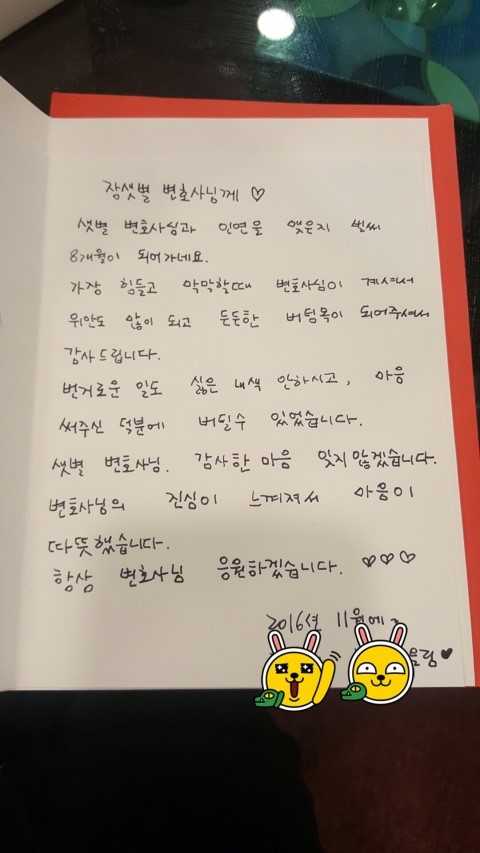 장샛별 변호사님께 ♡
샛별 변호사님과 인연을 맺은지 벌써
8개월이 되어가네요.
가장 힘들고 막막할때 변호사님이 계셔서
위안도 많이 되고 든든한 버팀목이 되어주셔서
감사드립니다.
번거로운 일도 싫은 내색 안하시고, 마음
써주신 덕분에 버틸수 있었습니다.
샛별 변호사님. 감사한 마음 잊지않겠습니다.
변호사님의 진심이 느껴져서 마음이
따뜻했습니다.
항상 변호사님 응원하겠습니다. ♡♡♡
2016년 11월에
올림♥